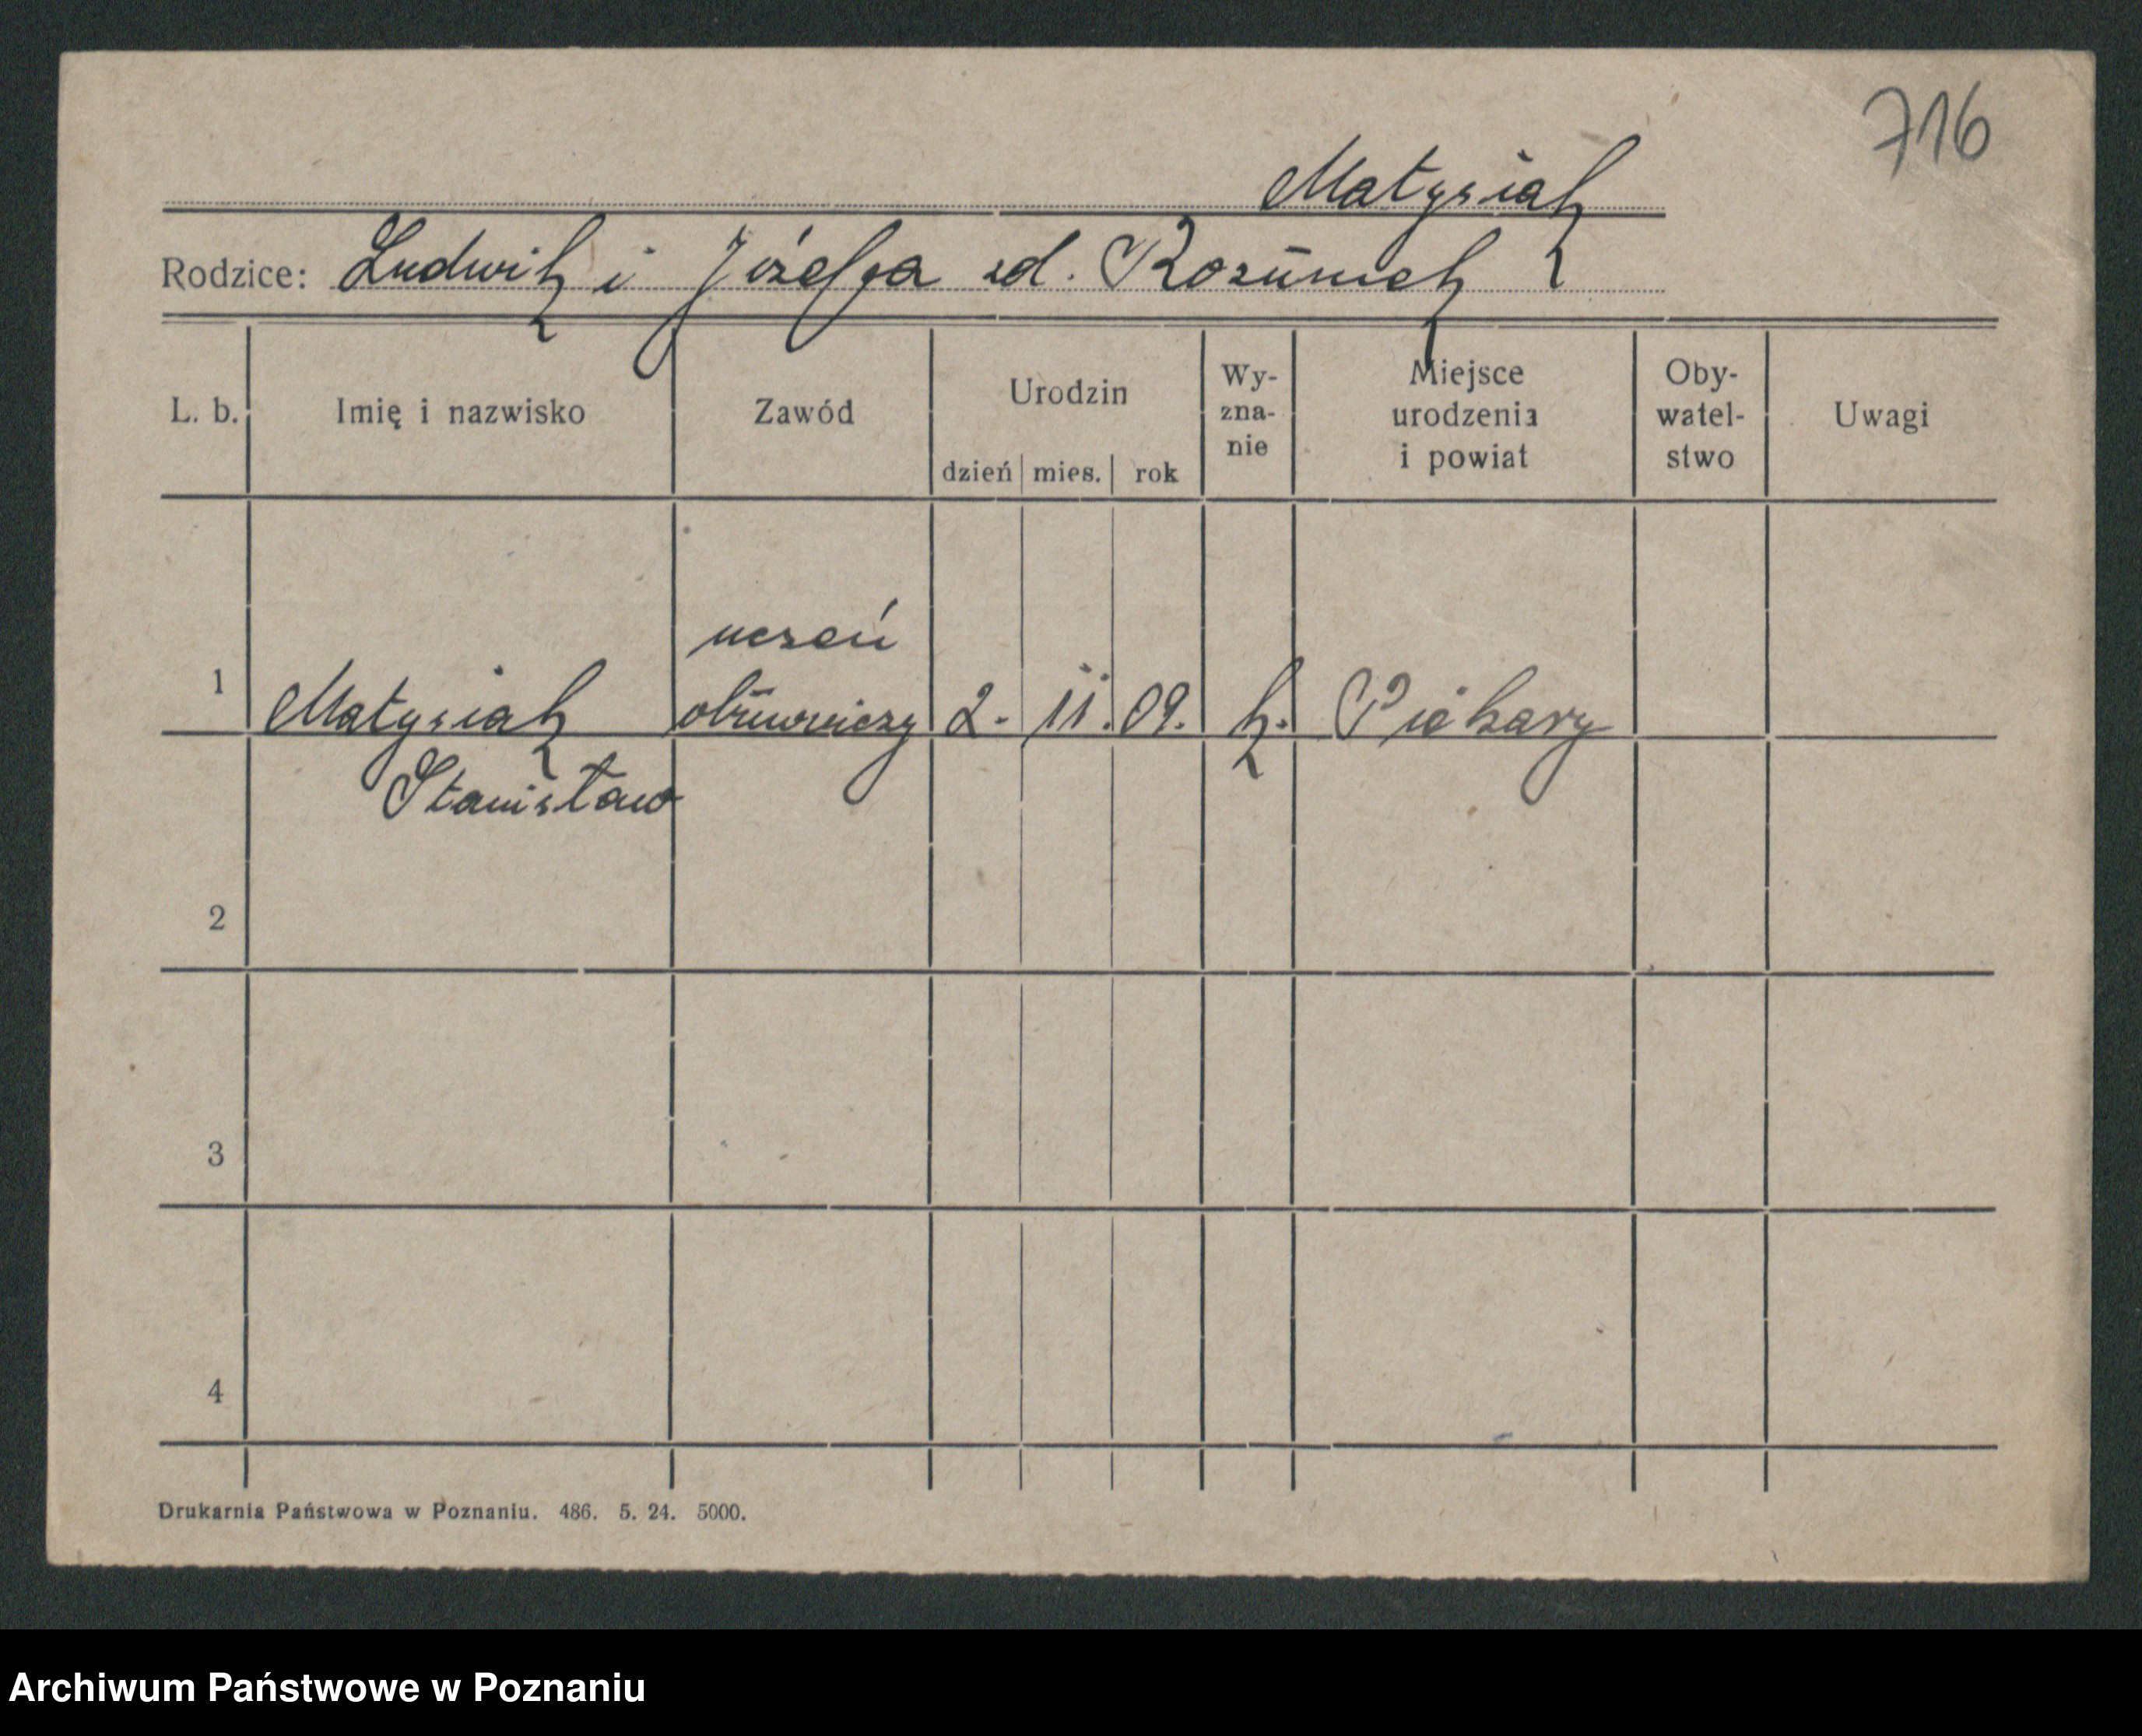 716
Matysiak
Rodzice: Ludwik i Józefa zd. Rozumek
L. b. Imię i nazwisko Zawód Urodzin dzień mies. rok Wy-zna-nie Miejsce urodzenia i powiat Oby-watel-stwo Uwagi
uczeń
1 Matysiak obuwniczy 2. 11. 09. k. Piekary
Stanisław
2
3
4
Drukarnia Państwowa w Poznaniu. 486. 5. 24. 5000.
Archiwum Państwowe w Poznaniu